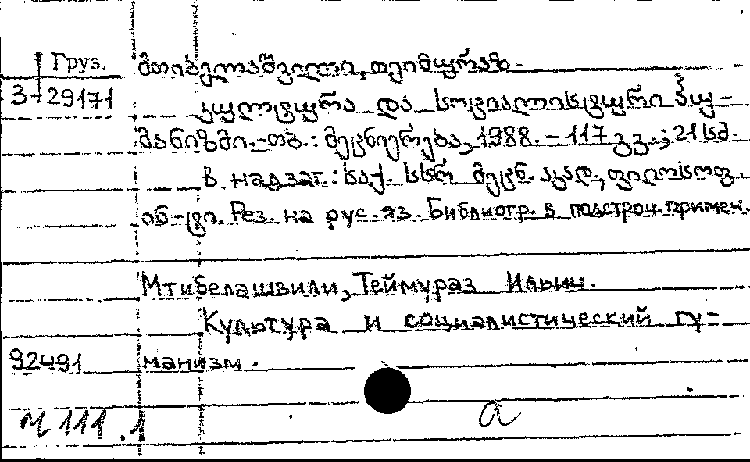 Груз. მთიბელაშვილი, თეიმურაზ.
3-29171 კულტურა და სოციალისტური ჰუ-
მანიზმი.-თბ.: მეცნიერება, 1988. - 117 გვ.; 21 სმ.
В надзаг.: საქ. სსრ მეცნ. აკად., ფილოსოფ.
ინ-ტი. Рез. на рус. яз. Библиогр. в подстроч. примеч.
Мтибелашвили, Теймураз Ильич.
Культура и социалистический гу-
92491 манизм.
111.1 а